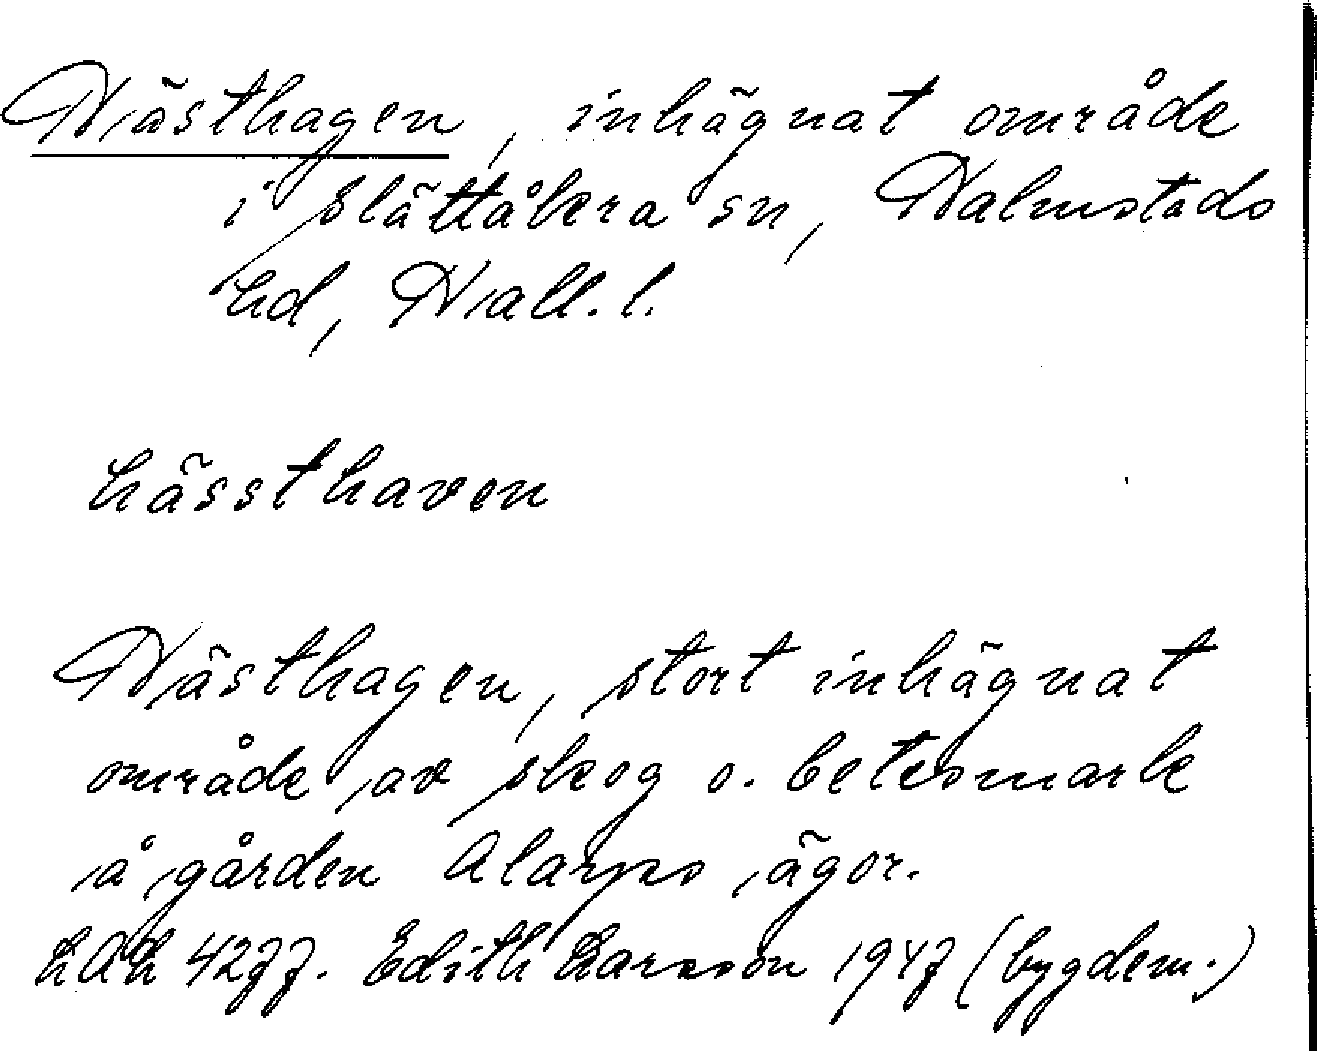 Hästhagen, inhägnat område
i Slättåkra sn, Halmstads
hd, Hall. l.
hässthaven
Hästhagen, stort inhägnat
område av skog o. betesmark
å gården Alarps ägor.
LAL 4277. Edith Larsson 1947 (bygdem.)